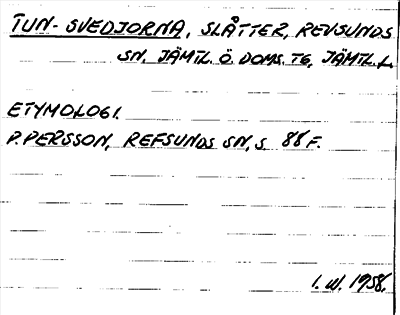 TUN-SVEDJORNA, SLÅTTER, REVSUNDS
SN. JÄMTL. Ö. DOMS. TG, JÄMTL. L.
ETYMOLOGI.
P. PERSSON, REFSUNDS SN, S 88 F.
I. W. 1958.